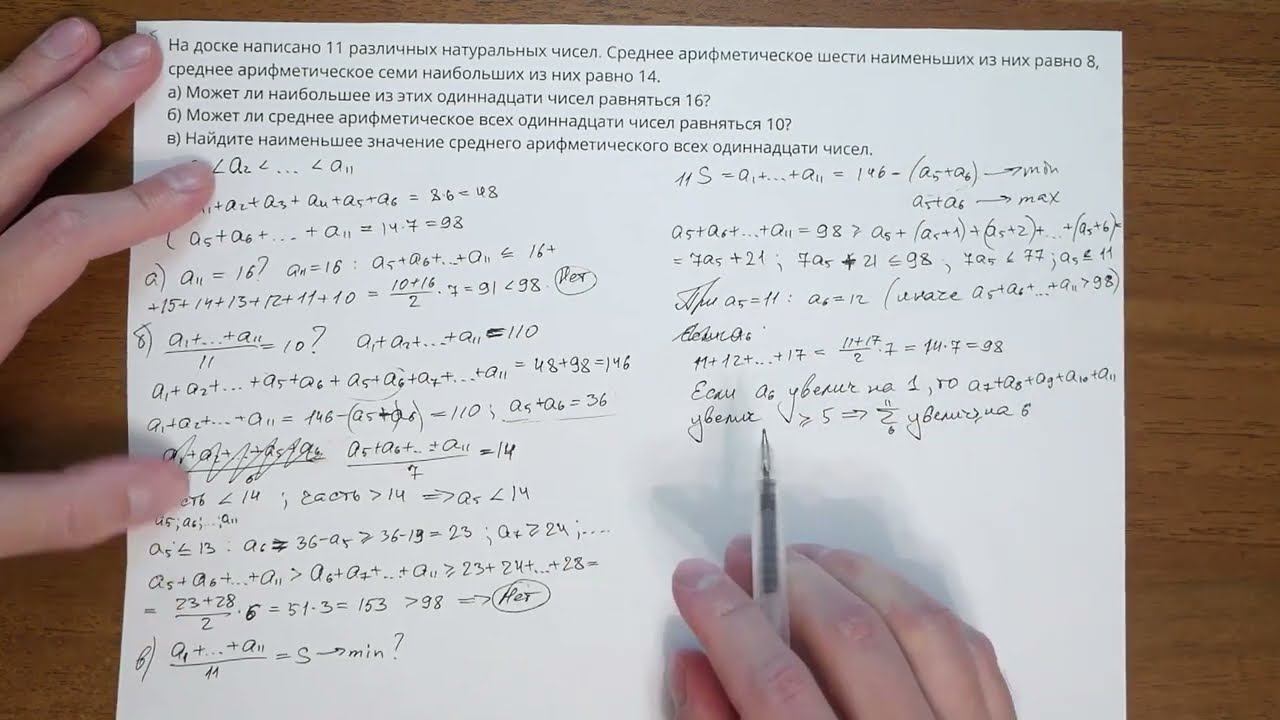 На доске написано 11 различных натуральных чисел. Среднее арифметическое шести наименьших из них равно 8,
среднее арифметическое семи наибольших из них равно 14.
а) Может ли наибольшее из этих одиннадцати чисел равняться 16?
б) Может ли среднее арифметическое всех одиннадцати чисел равняться 10?
в) Найдите наименьшее значение среднего арифметического всех одиннадцати чисел.
< a₂ < ... < a₁₁
+a₂+a₃+a₄+a₅+a₆ = 8·6=48
a₅+a₆+...+a₁₁ = 14·7=98
а) a₁₁=16? a₁₁=16 : a₅+a₆+...+a₁₁ ≤ 16+
+15+14+13+12+11+10 = (10+16)/2 · 7=91 < 98. Нет
б) (a₁+...+a₁₁)/11 = 10? a₁+a₂+...+a₁₁=110
a₁+a₂+...+a₅+a₆+a₅+a₆+a₇+...+a₁₁=48+98=146
a₁+a₂+...+a₁₁ = 146-(a₅+a₆)=110; a₅+a₆=36
(a₅+a₆+...+a₁₁)/7 = 14
<14 ; часть >14 ⇒ a₅<14
a₅;a₆;...;a₁₁
a₅≤13 : a₆ = 36-a₅ ≥ 36-13=23 ; a₇≥24;....
a₅+a₆+...+a₁₁ > a₆+a₇+...+a₁₁ ≥ 23+24+...+28=
= (23+28)/2 · 6 = 51·3=153 >98 ⇒ Нет
в) (a₁+...+a₁₁)/11 = S → min?
11S = a₁+...+a₁₁ = 146-(a₅+a₆) → min
a₅+a₆ → max
a₅+a₆+...+a₁₁=98 ≥ a₅+(a₅+1)+(a₅+2)+...+(a₅+6)=
= 7a₅+21 ; 7a₅+21 ≤ 98 ; 7a₅ ≤ 77 ; a₅ ≤ 11
При a₅=11 : a₆=12 (иначе a₅+a₆+...+a₁₁>98)
11+12+...+17 = (11+17)/2 · 7 = 14·7=98
Если a₆ увелич на 1, то a₇+a₈+a₉+a₁₀+a₁₁
увелич ≥ 5 ⇒ Σ увелич на 6